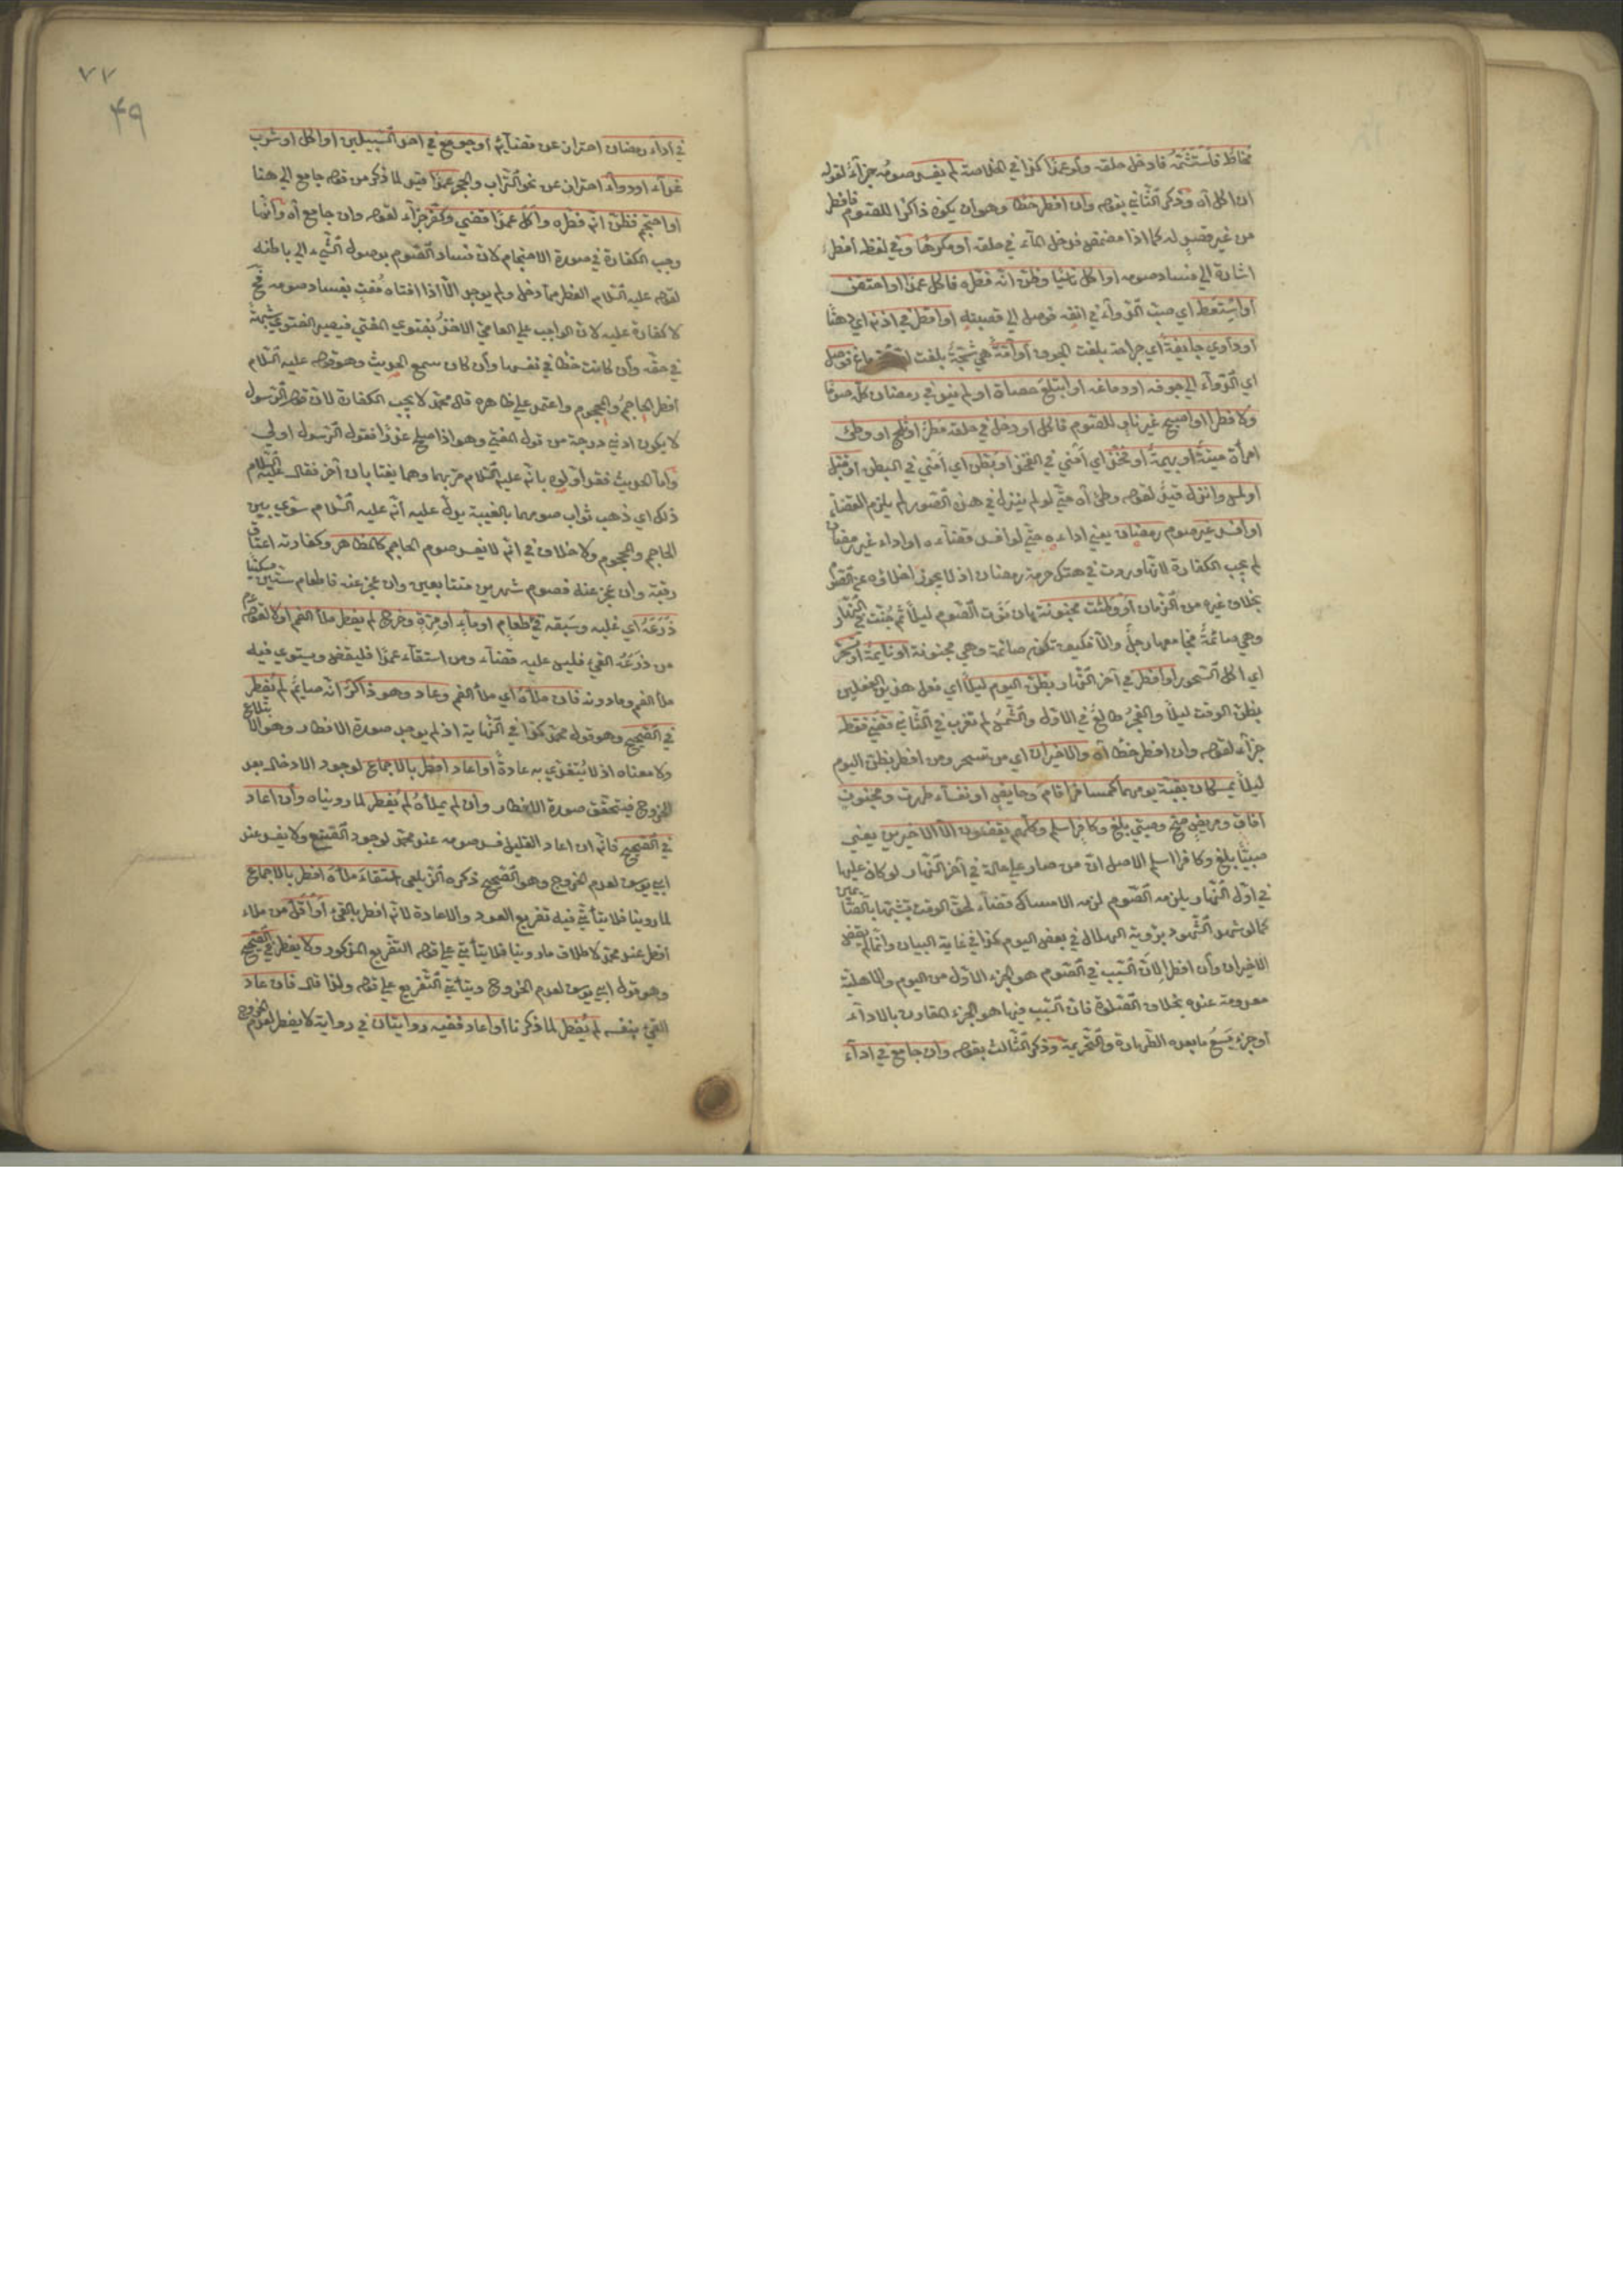 مخاطا فاستشمه فادخل حلقه ولو عمدا كذا في الخلاصة لم يفسد صومه جزاء لقوله
ان اكل آه وذكر الثاني بقوله وان افطر خطا وهو ان يكون ذاكرا للصوم فافطر
من غير قصد له كما اذا مضمض فدخل الماء في حلقه أو مكرها وفي لفظ أفطر
اشارة الى فساد صومه او اكل ناسيا وظن انه فطره فاكل عمدا او احتقن
أو استعط اي صب الدواء في انفه فوصل الى قصبته او اقطر في اذنه اي دهنا
او داوى جايفة اي جراحة بلغت الجوف او آمة هي شجة بلغت فوصل
اي الدواء الى جوفه او دماغه او ابتلع حصاة او لم ينو في رمضان كله صوما
ولا فطرا او اصبح غير ناو للصوم فاكل او دخل في حلقه مطر أو ثلج او وطئ
امرأة ميتة أو بهيمة أو فخذ اي أمنى في الفخذ او بطن اي أمنى في البطن او قبل
او لمس وانزل قيد لقوله وطئ آه حتى لو لم ينزل في هذه الصور لم يلزم القضاء
او افسد غير صوم رمضان يعني اداءه حتى لو افسد قضاءه او اداء غير رمضان
لم يجب الكفارة لانها وردت في هتك حرمة رمضان اذ لا يجوز اخلاؤه عن الصوم
بخلاف غيره من الزمان او وطئت مجنونة بان نوت الصوم ليلا ثم جنت في النهار
وهي صائمة فجامعها رجل والا فكيف تكون صائمة وهي مجنونة او نايمة أو تسحر
اي اكل السحور او افطر في آخر النهار بظن اليوم ليلا اي فعل هذين الفعلين
بظن الوقت ليلا والفجر طالع في الاول والشمس لم تغرب في الثاني قضى فقط
جزاء لقوله وان افطر خطا آه والاخيران اي من تسحر ومن افطر بظن اليوم
ليلا يمسكان بقية يومهما كمسافر اقام وحايض او نفساء طهرت ومجنون
افاق ومريض صح وصبي بلغ وكافر اسلم وكلهم يقضون الا الاخيرين يعني
صبيا بلغ وكافرا اسلم الاصل ان من صار على حالة في آخر النهار لو كان عليها
في اول النهار يلزمه الصوم لزمه الامساك قضاء لحق الوقت تشبها بالصائمين
كما لو شهد الشهود برؤية الهلال في بعض اليوم كذا في غاية البيان وانما لم يقض
الاخيران وان افطرا لان السبب في الصوم هو الجزء الاول من اليوم والاهلية
معدومة عنده بخلاف الصلوة فان السبب فيها هو الجزء المقارن بالاداء
أو جزء يسع ما بعده الطهارة والتحريمة وذكر الثالث بقوله وان جامع في اداء
٧٧
٤٩
في اداء رمضان احتراز عن قضائه أو جومع في احد السبيلين او اكل او شرب
غذاء او دواء احتراز عن نحو التراب والحجر عمدا قيد لما ذكر من قوله جامع الى هنا
او احتجم فظن انه فطره واكل عمدا قضى وكفر جزاء لقوله وان جامع آه وانما
وجب الكفارة في صورة الاحتجام لان فساد الصوم بوصول الشيء الى باطنه
لقوله عليه السلام الفطر مما دخل ولم يوجد الا اذا افتاه مفت بفساد صومه فح
لا كفارة عليه لان الواجب على العامي الاخذ بفتوى المفتي فيصير الفتوى شبهة
في حقه وان كانت خطا في نفسها وان كان سمع الحديث وهو قوله عليه السلام
أفطر الحاجم والمحجوم واعتمد على ظاهره قال محمد لا يجب الكفارة لان قول الرسول
لا يكون ادنى درجة من قول المفتي وهو اذا صلح عذرا فقول الرسول اولى
واما الحديث فقد اولوه بانه عليه السلام مر بهما وهما يغتابان آخر فقال عليه السلام
ذلك اي ذهب ثواب صومهما بالغيبة يدل عليه انه عليه السلام سوى بين
الحاجم والمحجوم ولا خلاف في انه لا يفسد صوم الحاجم كالمظاهر وكفارته اعتاق
رقبة وان عجز عنه فصوم شهرين متتابعين وان عجز عنه فاطعام ستين مسكينا
ذرعه اي غلبه وسبقه قيء طعام او ماء او مرة وخرج لم يفطر ملأ الفم اولا لقوله عم
من ذرعه القيء فليس عليه قضاء ومن استقاء عمدا فليقض ويستوي فيه
ملأ الفم وما دونه فان ملأه اي ملأ الفم وعاد وهو ذاكر انه صائم لم يفطر
في الصحيح وهو قول محمد كذا في النهاية اذ لم يوجد صورة الافطار وهو الابتلاع
ولا معناه اذ لا يتغذى به عادة او اعاد افطر بالاجماع لوجود الادخال بعد
الخروج فيتحقق صورة الافطار وان لم يملأه لم يفطر لما رويناه وان اعاد
في الصحيح فانه ان اعاد القليل فسد صومه عند محمد لوجود الصنع ولا يفسد عند
ابي يوسف لعدم الخروج وهو الصحيح ذكره الزيلعي استقاء ملأه افطر بالاجماع
لما روينا فلا يتأتى فيه تفريع العود والاعادة لانه افطر بالقيء أو أقل من ملاء
أفطر عند محمد لاطلاق ما روينا فلا يتأتى على قوله التفريع المذكور ولا يفطر في الصحيح
وهو قول ابي يوسف لعدم الخروج ويتأتى التفريع على قوله ولذا قال فان عاد
القيء بنفسه لم يفطر لما ذكرنا او اعاد ففيه روايتان في رواية لا يفطر لعدم الخروج